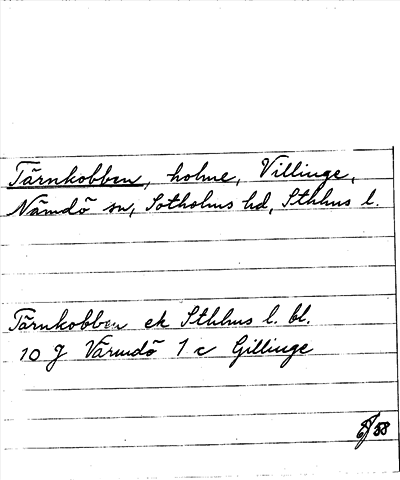 Tärnkobben, holme, Villinge,
Nämdö sn, Sotholms hd, Sthlms l.
Tärnkobben ek Sthlms l. bl.
10 J Värmdö 1 c Gillinge